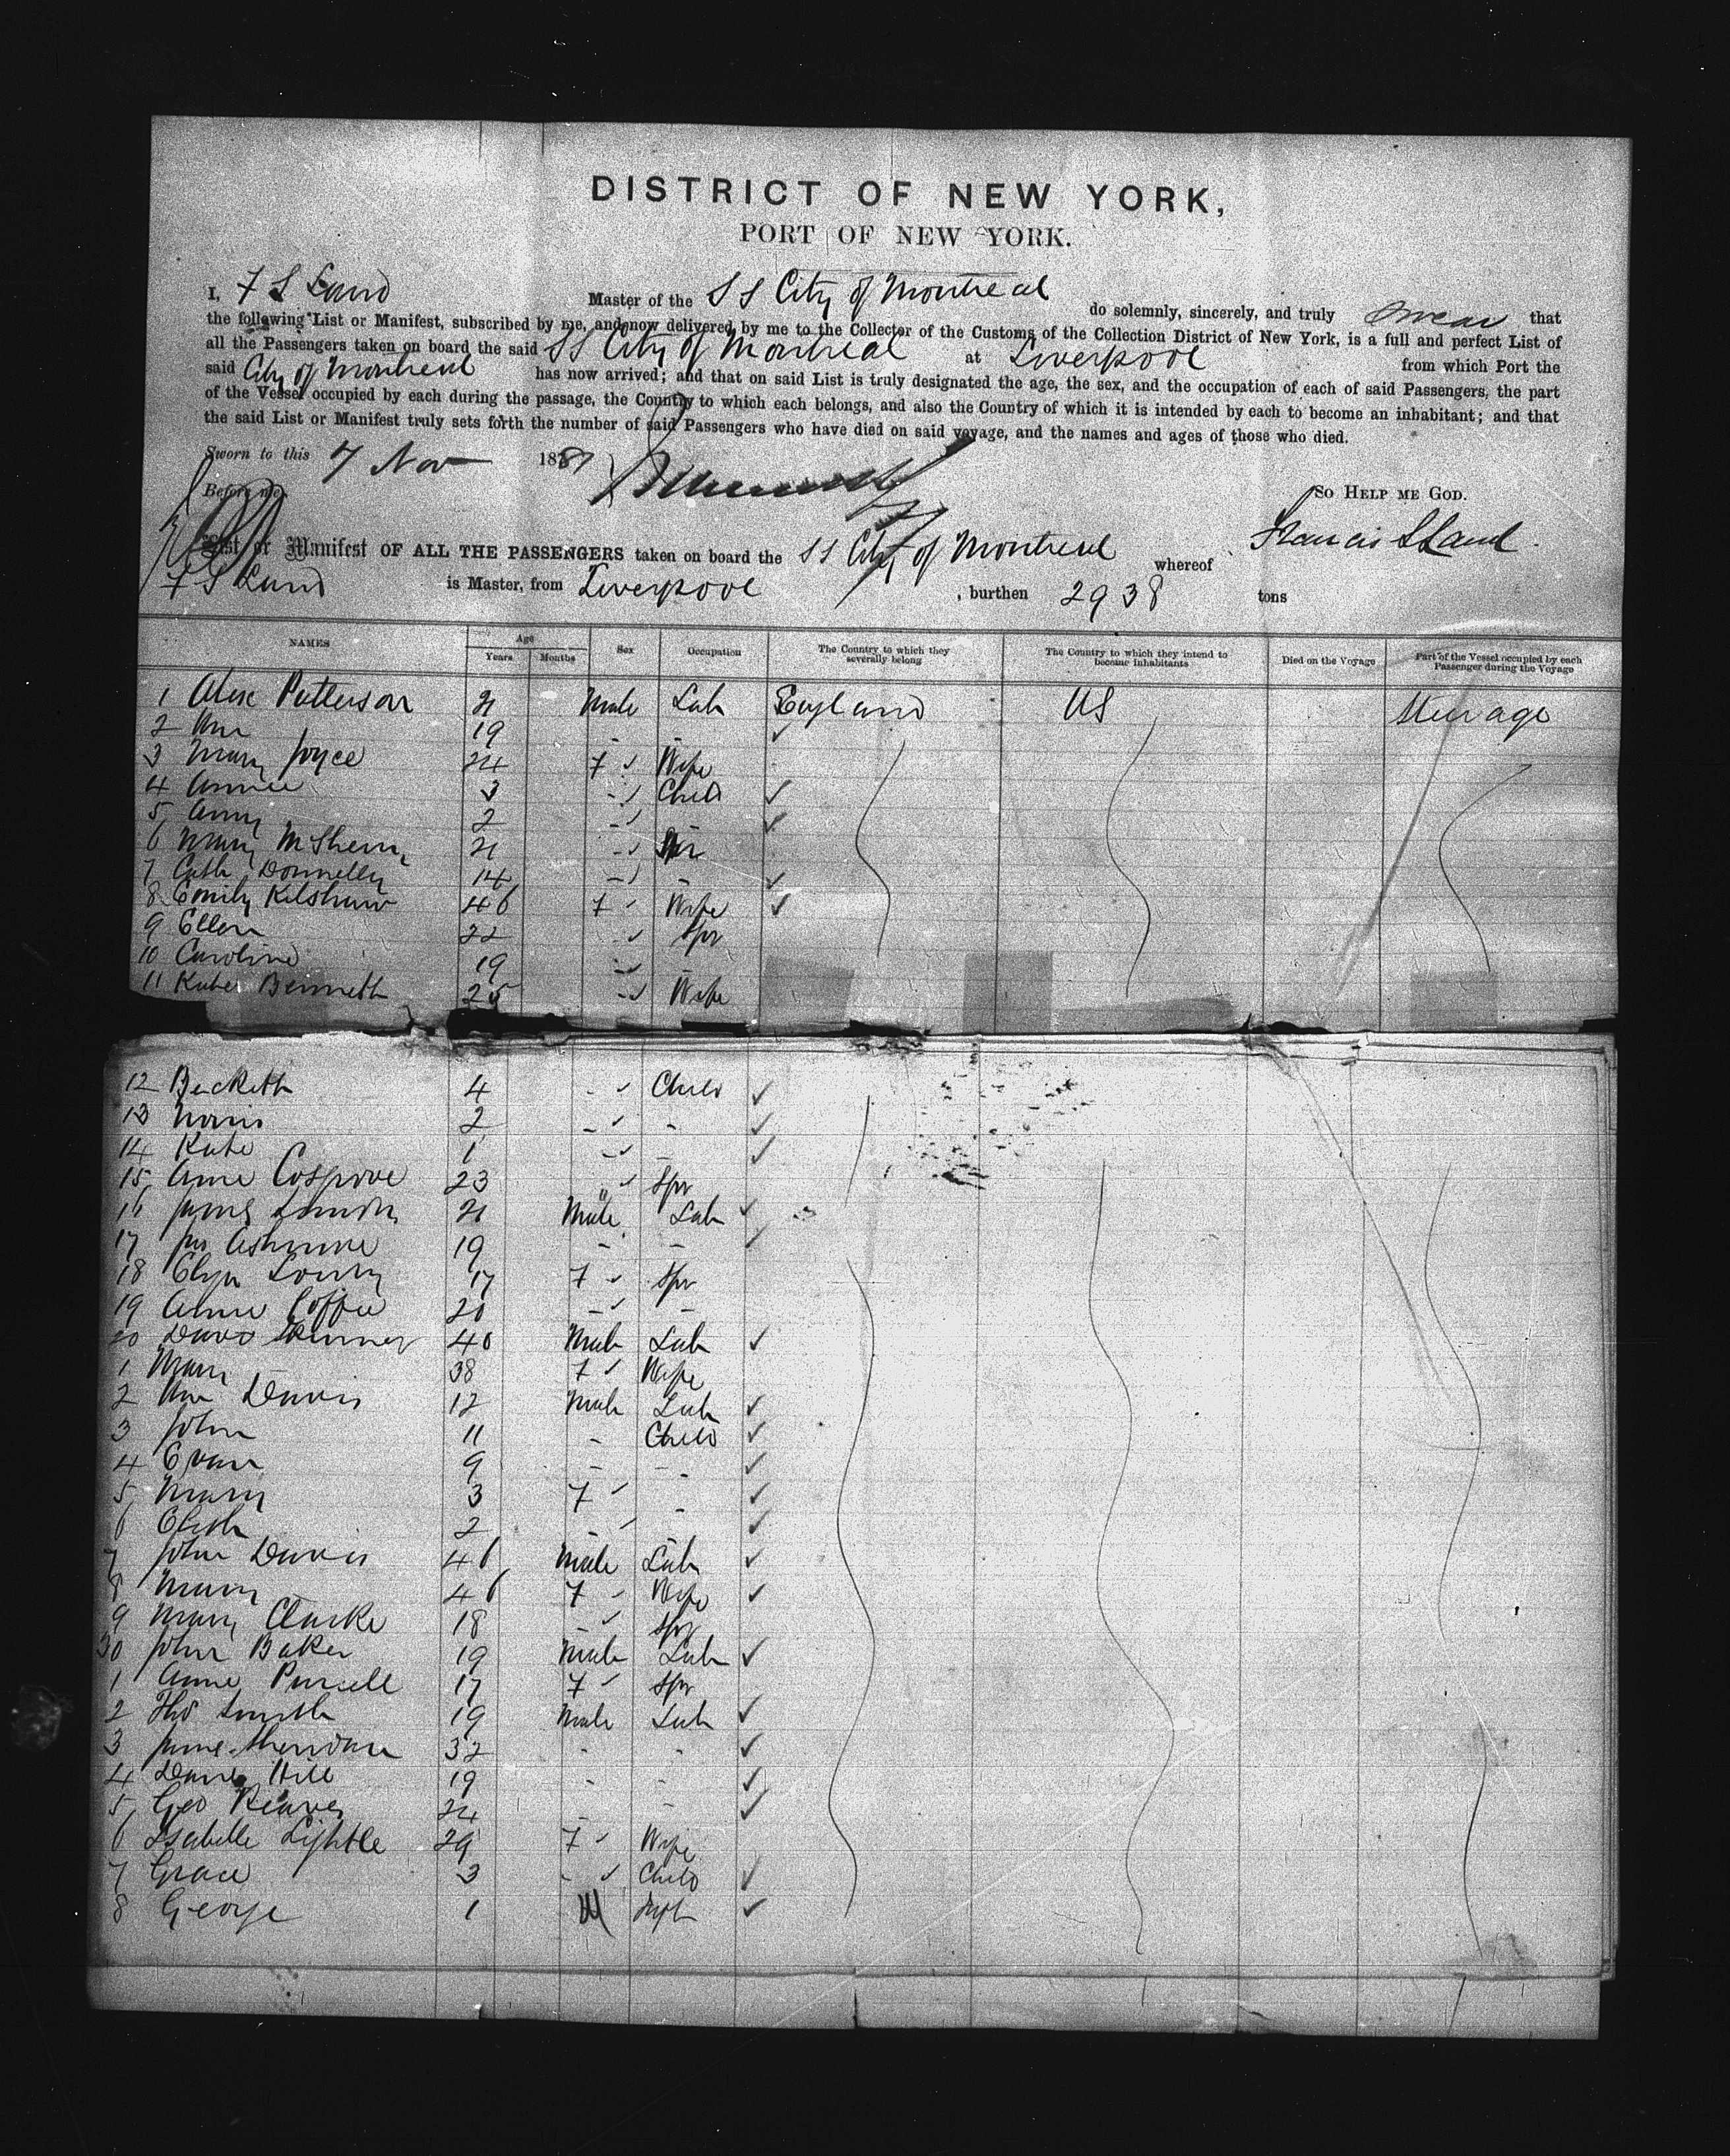 DISTRICT OF NEW YORK,
PORT OF NEW YORK.
I, F S Land Master of the S S City of Montreal do solemnly, sincerely, and truly swear that
the following List or Manifest, subscribed by me, and now delivered by me to the Collector of the Customs of the Collection District of New York, is a full and perfect List of
all the Passengers taken on board the said S S City of Montreal at Liverpool from which Port the
said City of Montreal has now arrived; and that on said List is truly designated the age, the sex, and the occupation of each of said Passengers, the part
of the Vessel occupied by each during the passage, the Country to which each belongs, and also the Country of which it is intended by each to become an inhabitant; and that
the said List or Manifest truly sets forth the number of said Passengers who have died on said voyage, and the names and ages of those who died.
Sworn to this 7 Nov 1881
Before me, So HELP ME GOD.
Francis S Land
List or Manifest OF ALL THE PASSENGERS taken on board the S S City of Montreal whereof
F S Land is Master, from Liverpool, burthen 2938 tons
NAMES Age Years Months Sex Occupation The Country to which they severally belong The Country to which they intend to become inhabitants Died on the Voyage Part of the Vessel occupied by each Passenger during the Voyage
1 Alex Patterson 21 Male Lab England US Steerage
2 Wm 19 - -
3 Mary Joyce 24 F Wife
4 Annie 3 - Child
5 Amy 2 -
6 Mary 21 - Spr
7 Cath Donnelly 14 - -
8 Emily Kilshaw 46 F Wife
9 Ellen 22 Spr
10 Caroline 19 - -
11 Kate Bennett 25 - Wife
12 Beckett 4 - Child
13 2 - -
14 Kate 1 - -
15 Anne Cosgrove 23 Spr
16 James 21 Male Lab
17 Jas Ashmore 19 - -
18 Eliza 17 F Spr
19 Anne Coffee 20 - -
20 David Skinner 40 Male Lab
1 Mary 38 F Wife
2 Wm Davis 12 Male Lab
3 John 11 - Child
4 Evan 9 - -
5 Mary 3 F -
6 2 -
7 John Davis 46 Male Lab
8 Mary 46 F Wife
9 Mary Clarke 18 - Spr
30 John Baker 19 Male Lab
1 Anne Purcell 17 F Spr
2 Tho Smith 19 Male Lab
3 Sheridan 32 - -
4 Hill 19 - -
5 Geo 24 - -
6 Isabella Lightle 29 F Wife
7 Grace 3 - Child
8 George 1 M Inft